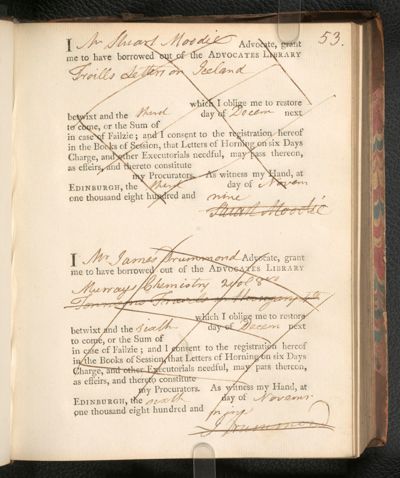 53.
I Mr Stuart Moodie Advocate, grant
me to have borrowed out of the ADVOCATES LIBRARY
Troills Letters on Iceland
which I oblige me to restore
betwixt and the third day of Decem next
to come, or the Sum of
in case of Failzie; and I consent to the registration hereof
in the Books of Session, that Letters of Horning on six Days
Charge, and other Executorials needful, may pass thereon,
as effeirs, and thereto constitute
my Procurators. As witness my Hand, at
EDINBURGH, the third day of Novem
one thousand eight hundred and nine
Stuart Moodie
I Mr James Drummond Advocate, grant
me to have borrowed out of the ADVOCATES LIBRARY
Murrays Chemistry 2 vol 8vo
Townsons Travels in Hungary 4to
which I oblige me to restore
betwixt and the sixth day of Decem next
to come, or the Sum of
in case of Failzie; and I consent to the registration hereof
in the Books of Session, that Letters of Horning on six Days
Charge, and other Executorials needful, may pass thereon,
as effeirs, and thereto constitute
my Procurators. As witness my Hand, at
EDINBURGH, the sixth day of Novemr
one thousand eight hundred and
J Drummond